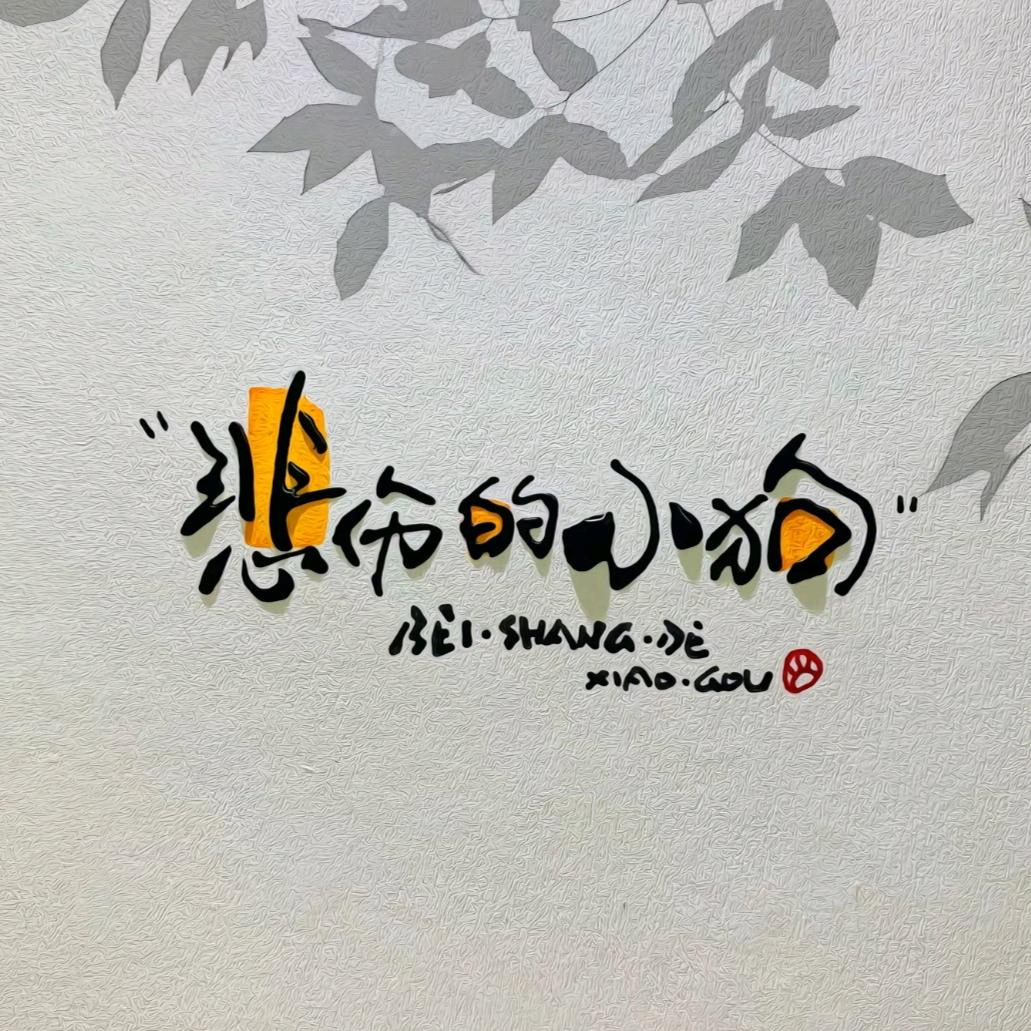 "悲伤的小狗"
BEI·SHANG·DE
XIAO·GOU